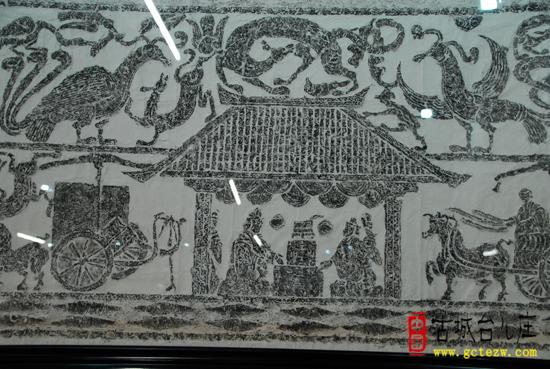 中国 古城台儿庄
www.gctezw.com